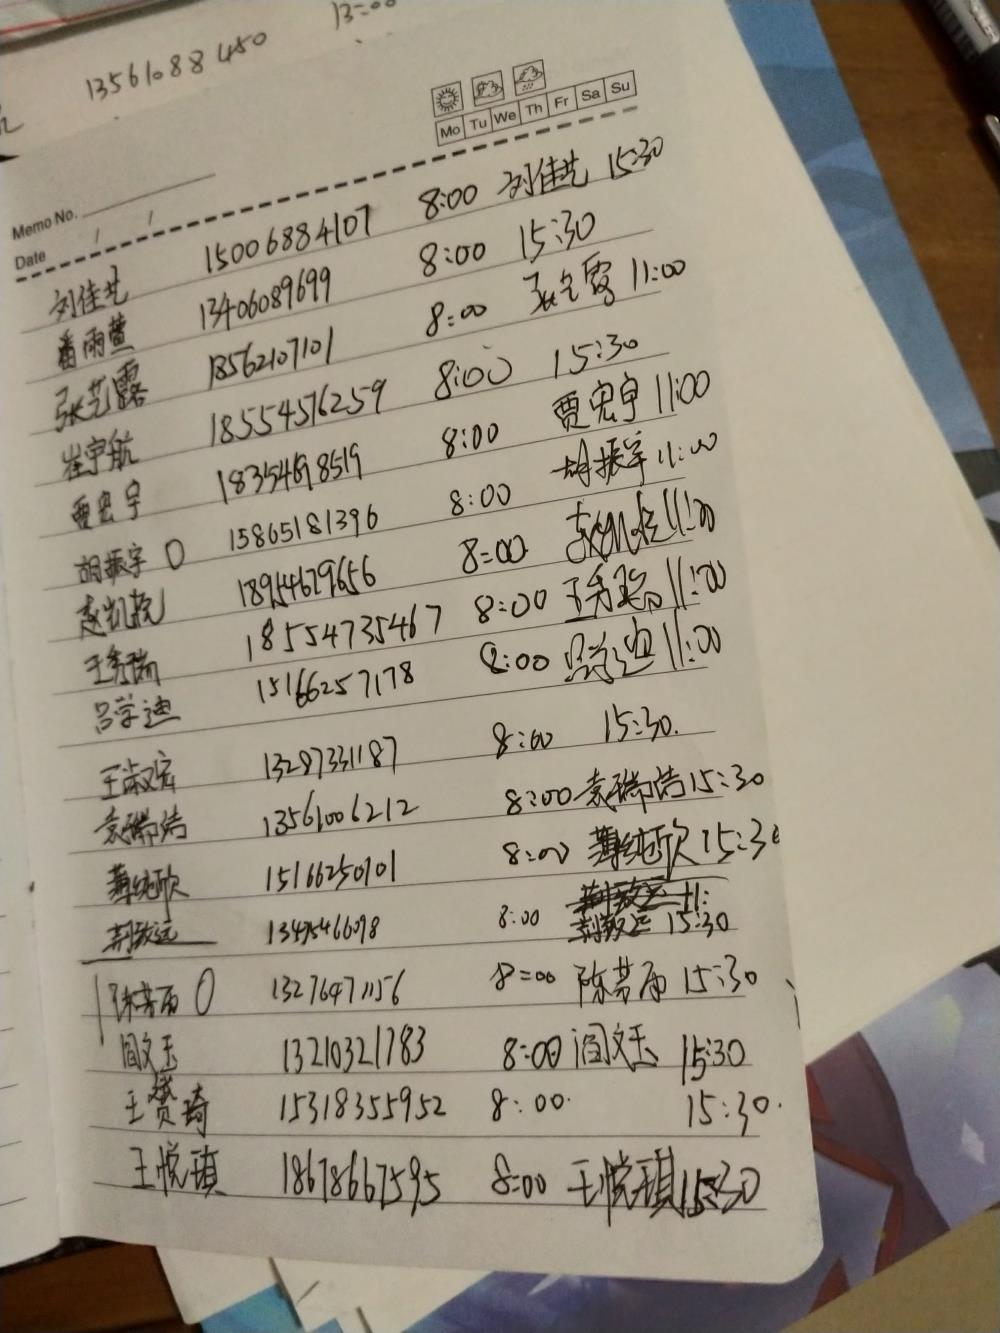 13:00
13561088450
Mo Tu We Th Fr Sa Su
Memo No.
Date / /
刘佳艺 15006884107 8:00 刘佳艺 15:30
潘雨萱 13406089699 8:00 15:30
张艺露 18562107101 8:00 张艺露 11:00
崔宇航 18554576259 8:00 15:30
贾宏宇 18354698519 8:00 贾宏宇 11:00
胡振宇 0 15865181396 8:00 胡振宇 11:00
赵凯悦 18954679656 8:00 11:00
王秀瑞 18554735467 8:00 王秀瑞 11:00
吕学迪 15166257178 8:00 吕学迪 11:00
王淑宏 13287331187 8:00 15:30.
袁瑞浩 13561006212 8:00 袁瑞浩 15:30
薄纯欣 15166250101 8:00 薄纯欣 15:30
荆致远 8:00 荆致远 15:30
陈芳雨 0 13276471156 8:00 陈芳雨 15:30
闫文玉 13210321783 8:00 闫文玉 15:30
王赟琦 15318355952 8:00. 15:30.
王悦琪 18678667595 8:00 王悦琪 15:30